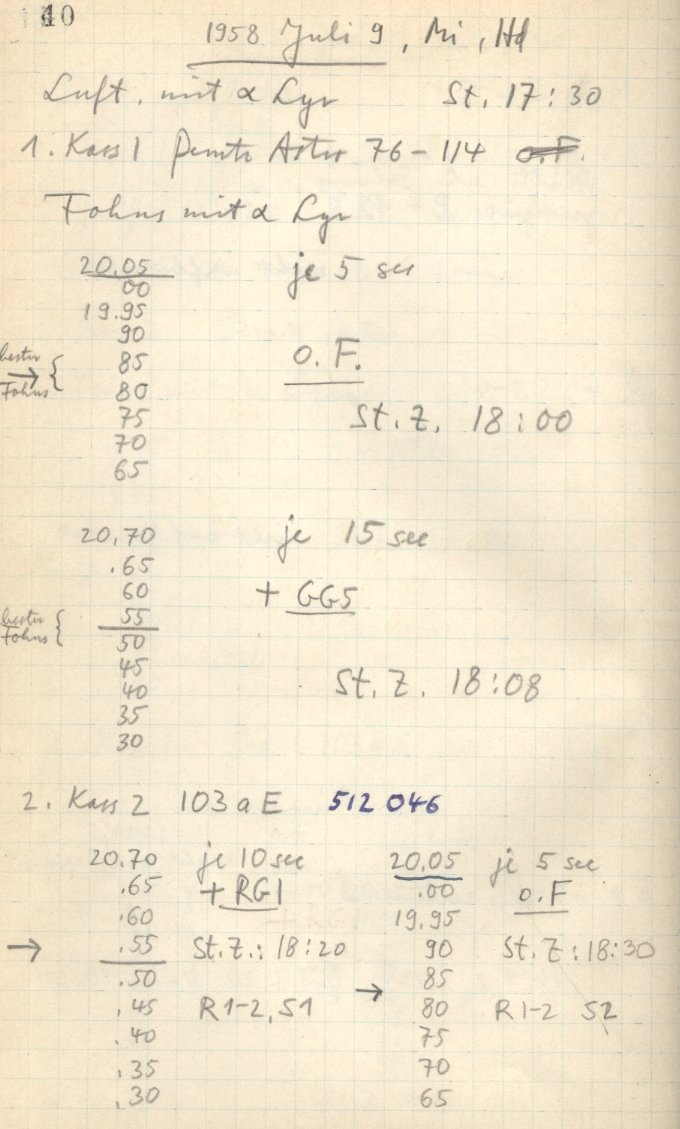 40
1958 Juli 9, Mi, Hd
Luft. mit α Lyr St. 17:30
1. Kass 1 Astro 76-114 o.F.
Fokus mit α Lyr
20.05 je 5 sec
00
19.95
90
bester → Fokus { 85 o.F.
80
75 St.Z. 18:00
70
65
20,70 je 15 sec
.65
60 + GG5
bester Fokus { 55
50
45
40 St.Z. 18:08
35
30
2. Kass 2 103 a E 512 046
20.70 je 10 sec 20,05 je 5 sec
.65 + RG1 .00 o.F
.60 19,95
→ .55 St.Z.: 18:20 90 St.Z: 18:30
.50 85
.45 R1-2, S1 → 80 R1-2 S2
.40 75
.35 70
.30 65